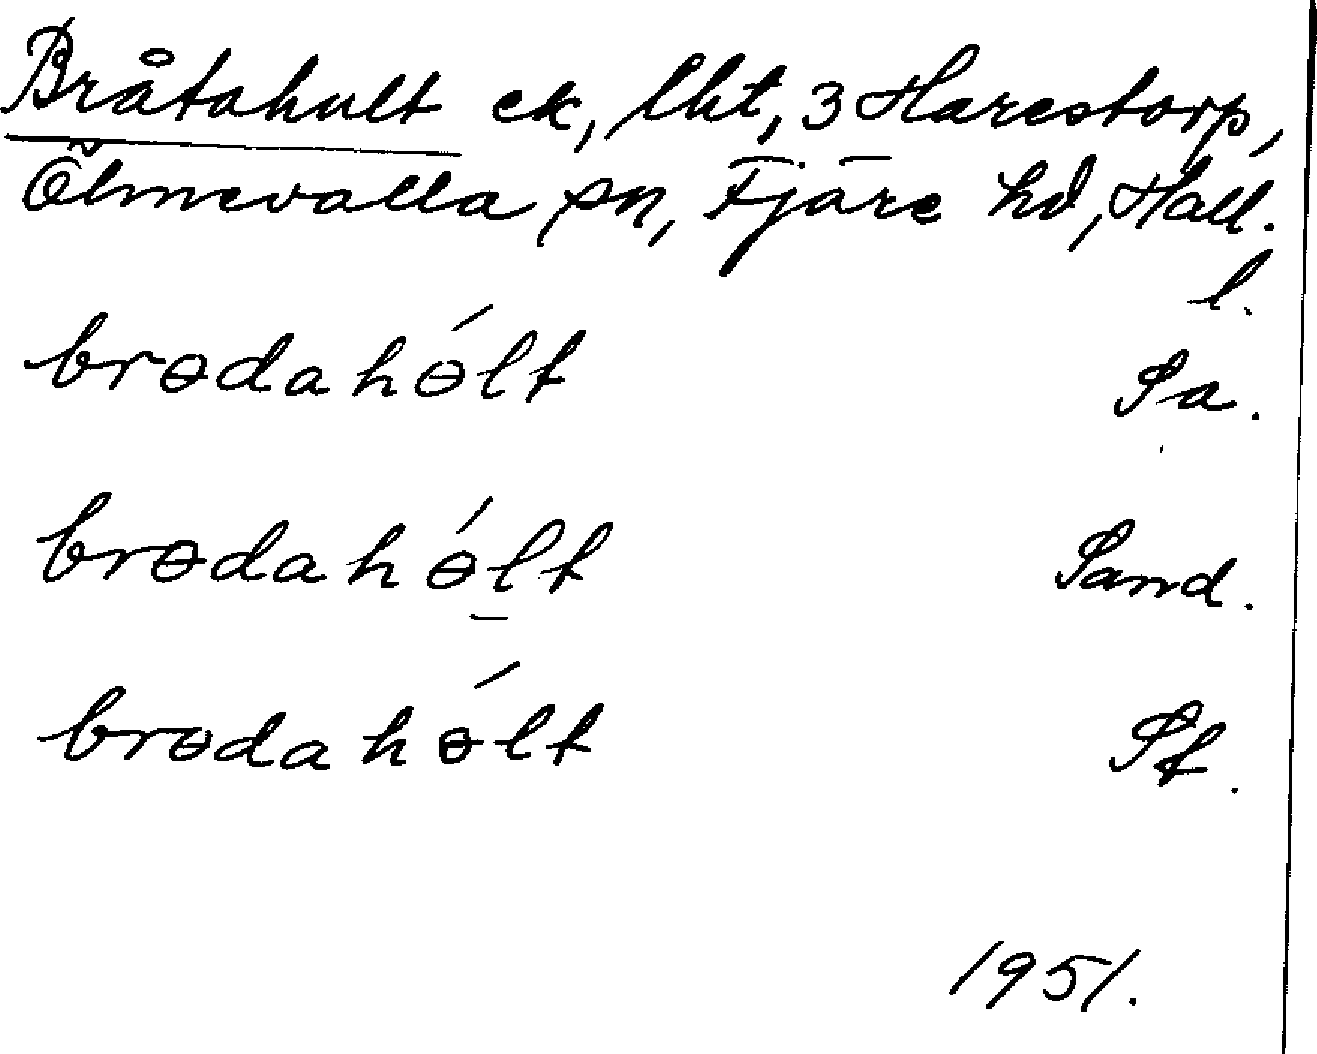 Bråtahult ek, lht, 3 Harestorp,
Ölmevalla sn, Fjäre hd, Hall.
l.
brɵdahɵ́lt Sa.
brɵdahɵ́lt Sand.
brɵdahɵ́lt Sf.
1951.